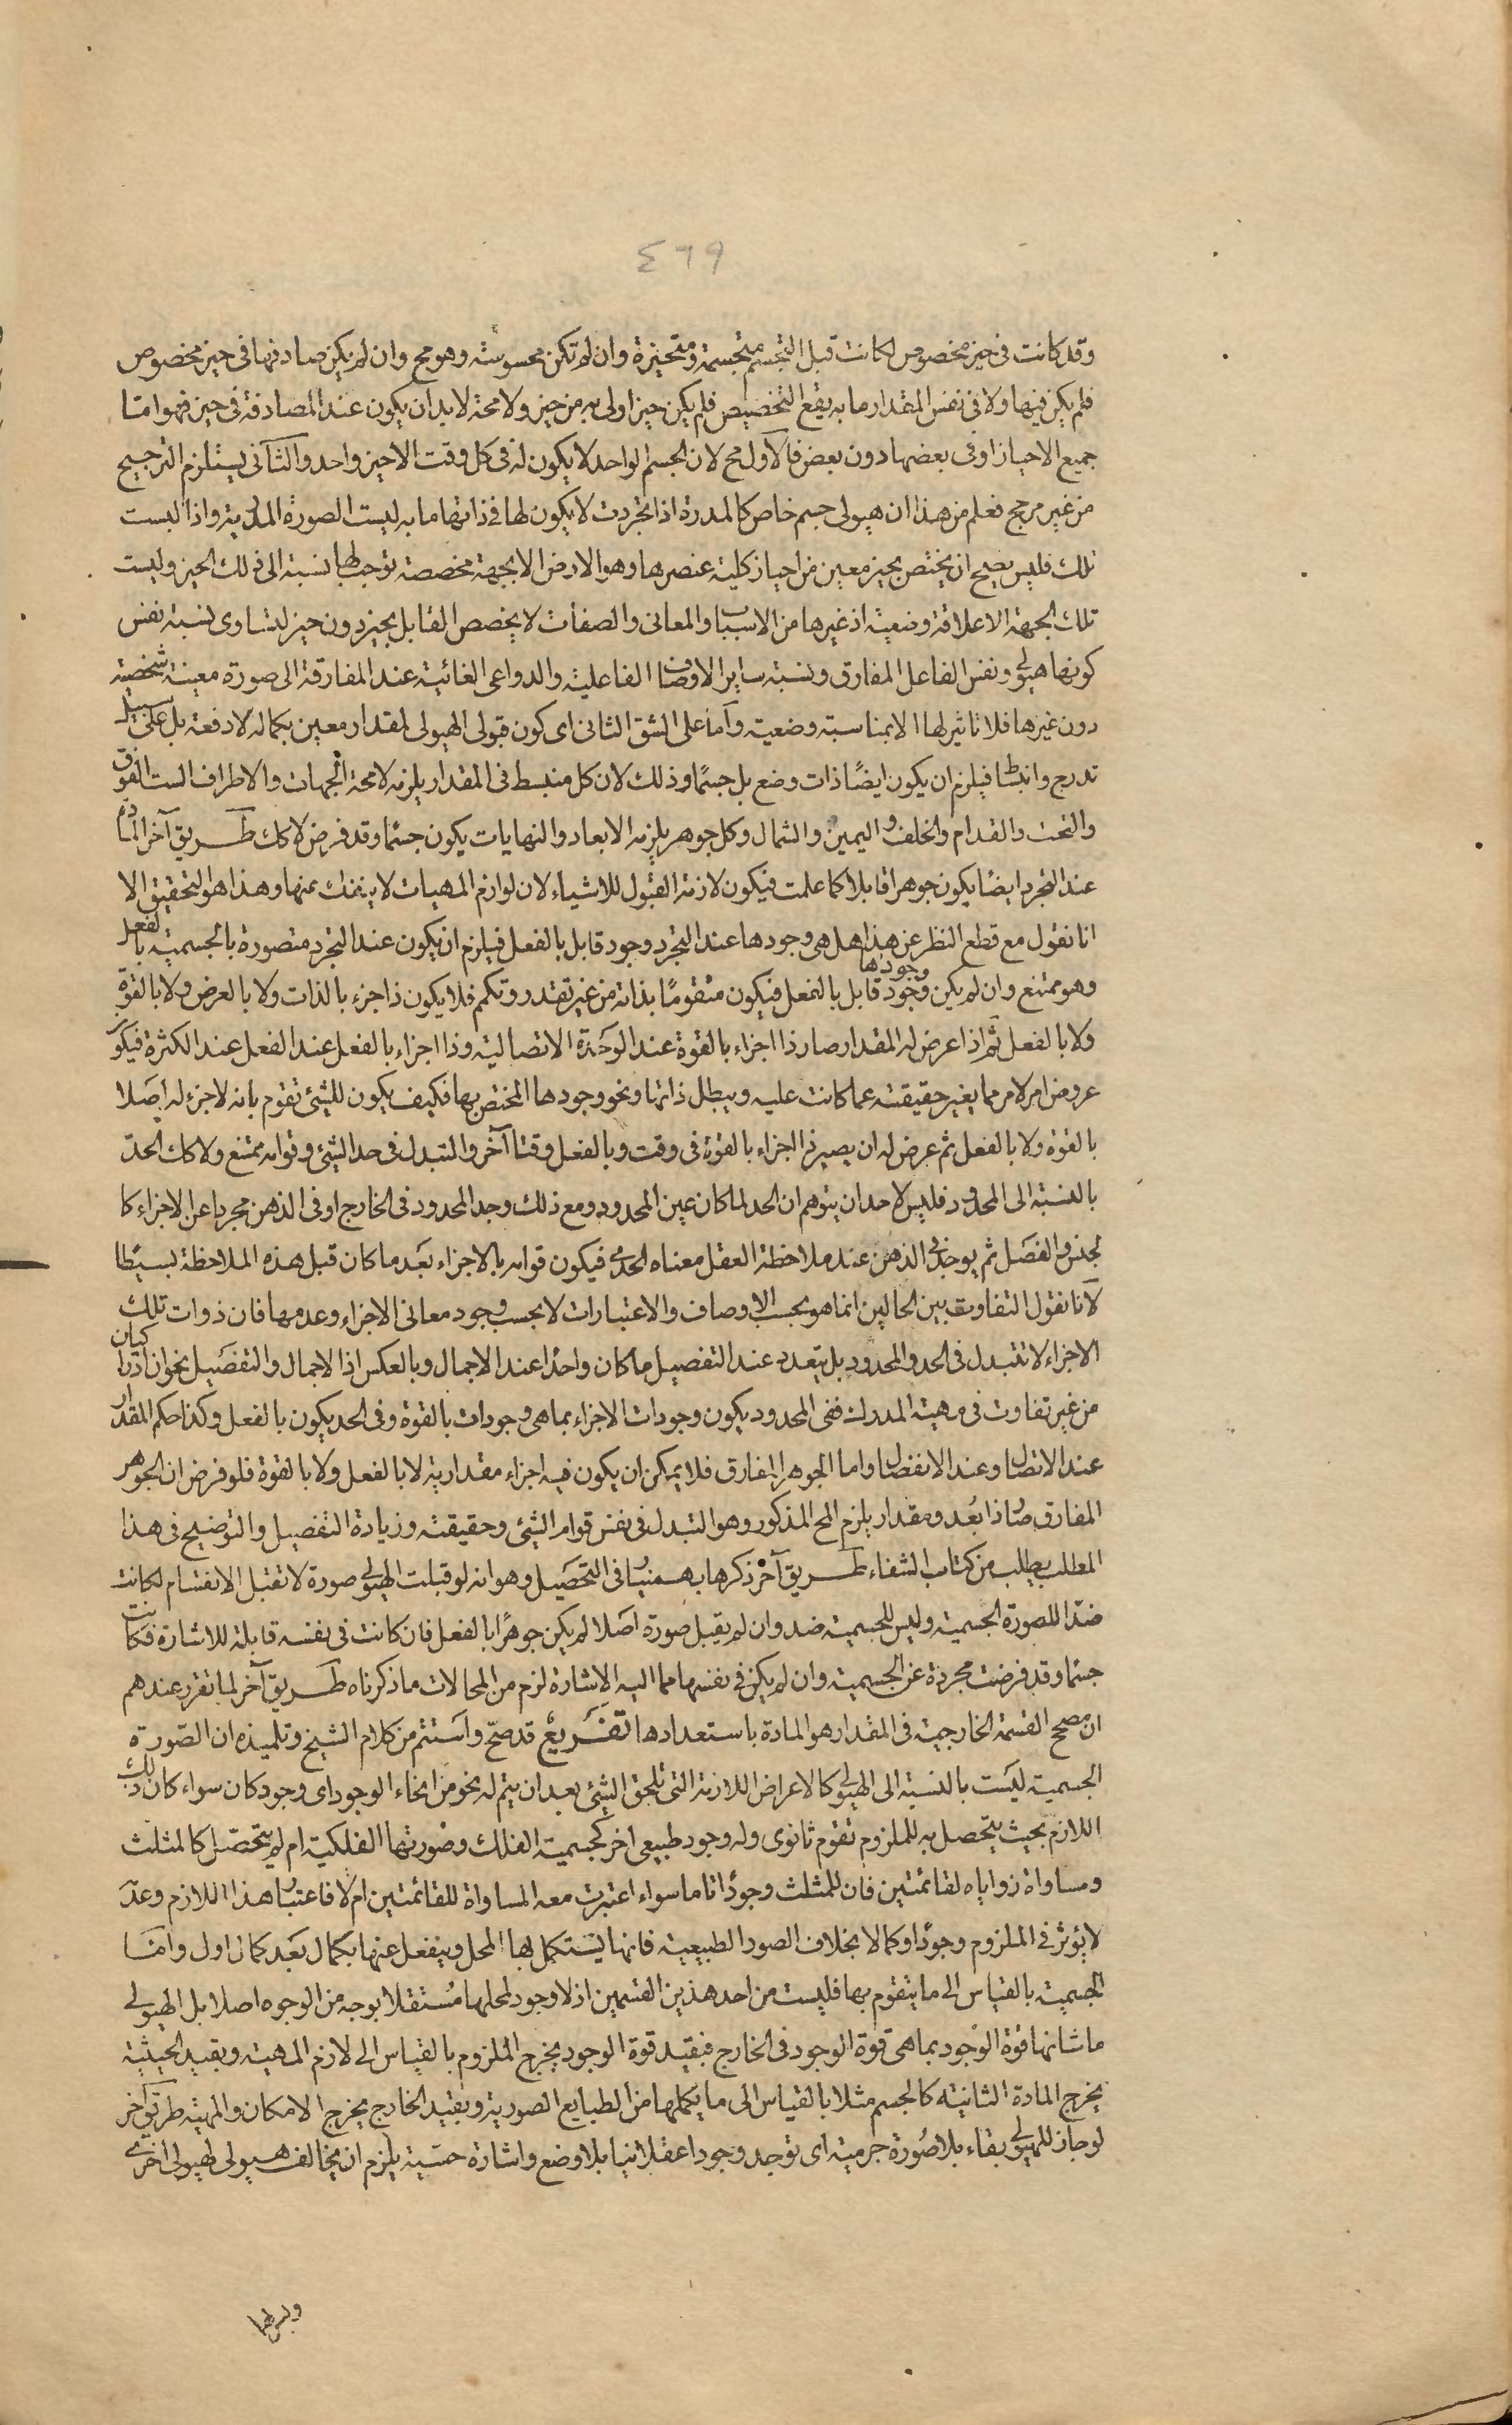 ٤٦٩
وقد كانت في حيز مخصوص لكانت قبل التجسم متجسمة ومتحيزة وان لم تكن محسوسته وهو مح وان لم يكن صادفها في حيز مخصوص
فلم يكن فيها ولا في نفس المقدار ما به يقع التخصيص فلم يكن حيز اولى به من حيز ولا محة لا بد ان يكون عند المصادفة في حيز فهو اما
جميع الاحياز او في بعضها دون بعض فالاول مح لان الجسم الواحد لا يكون له في كل وقت الا حيز واحد والثاني يستلزم الترجيح
من غير مرجح فعلم من هذا ان هيولى جسم خاص كالمدرة اذا تجردت لا يكون لها في ذاتها ما به لبست الصورة المدرية واذا لبست
تلك فليس يصح ان يختص بحيز معين من احياز كلية عنصرها وهو الارض الا بجهة مخصصة توجب لها نسبة الى ذلك الحيز وليست
تلك الجهة الا علاقة وضعية اذ غيرها من الاسباب والمعاني والصفات لا يخصص القابل بحيز دون حيز لتساوى نسبة نفس
كونها هيولى ونفس الفاعل المفارق ونسبة ساير الاوضاا الفاعلية والدواعى الغائية عند المفارقة الى صورة معينة شخصية
دون غيرها فلا تاثير لها الا بمناسبة وضعية وآما على الشق الثاني اى كون قبول الهيولى لمقدار معين بكماله لا دفعة بل على سبيل
تدرج وانبساط فيلزم ان يكون ايضًا ذات وضع بل جسمًا وذلك لان كل منبسط في المقدار يلزمه لامحة الجهات والاطراف الست الفوق
والتحت والقدام والخلف واليمين والشمال وكل جوهر يلزمه الابعاد والنهايات يكون جسمًا وقد فرض لا كك طريق آخر المادة
عند التجرد ايضًا يكون جوهرا قابلا كما علمت فيكون لازمة القبول للاشياء لان لوازم المهيات لا ينفك عنها وهذا هو التحقيق الا
انا نقول مع قطع النظر عن هذا هل هى وجودها عند التجرد وجود قابل بالفعل فيلزم ان يكون عند التجرد متصورة بالجسمية بالفعل
وهو ممتنع وان لم يكن وجودها وجود قابل بالفعل فيكون متقومًا بذاته من غير تقدر وتكمم فلا يكون ذا جزء بالذات ولا بالعرض ولا بالقوة
ولا بالفعل ثم اذا عرض له المقدار صار ذا اجزاء بالقوة عند الوحدة الاتصالية وذا اجزاء بالفعل عند الفعل عند الكثرة فيكو
عروض امر لامر مما يغير حقيقته عما كانت عليه ويبطل ذاتها ونحو وجودها المختص بها فكيف يكون للشئ تقوم بانه لا جزء له اصلا
بالقوة ولا بالفعل ثم عرض له ان يصير ذا اجزاء بالقوة في وقت وبالفعل وقتا آخر والتبدل في حد الشئ وقوامه ممتنع ولا كك الحدّ
بالنسبة الى المحدود فليس لاحد ان يتوهم ان الحد لما كان عين المحدود ومع ذلك وجد المحدود في الخارج او في الذهن مجردا عن الاجزاء كا
لجنس والفصل ثم يوجد في الذهن عند ملاحظة العقل معناه الحدى فيكون قوامه بالاجزاء بعد ما كان قبل هذه الملاحظة بسيطًا
لآنا نقول التفاوت بين الحالين انما هو بحسب الاوصاف والاعتبارات لا بحسب وجود معانى الاجزاء وعدمها فان ذوات تلك
الاجزاء لا تتبدل في الحد والمحدود بل يتعدد عند التفصيل ما كان واحدًا عند الاجمال وبالعكس اذ الاجمال والتفصيل نحوان ادراكيان
من غير تفاوت في مهية المدرك ففى المحدود يكون وجودات الاجزاء بما هى وجودات بالقوة وفى الحد يكون بالفعل وكذا حكم المقدار
عند الاتصال وعند الانفصال واما الجوهر المفارق فلا يمكن ان يكون فيه اجزاء مقدارية لا بالفعل ولا بالقوة فلو فرض ان الجوهر
المفارق صار ذا بُعد ومقدار يلزم المح المذكور وهو التبدل في نفس قوام الشئ وحقيقته وزيادة التفصيل والتوضيح في هذا
المطلب يطلب من كتاب الشفاء طريق آخر ذكرها بهمنيار في التحصيل وهو انه لو قبلت الهيولى صورة لا تقبل الانقسام لكانت
ضدّا للصورة الجسمية وليس للجسمية ضد وان لم يقبل صورة اصلا لم يكن جوهرًا بالفعل فان كانت في نفسه قابلة للاشارة فكانت
جسمًا وقد فرضت مجردة عن الجسمية وان لم يكن في نفسها مما اليه الاشارة لزم من المحالات ما ذكرناه طريق آخر لما تقرر عندهم
ان مصحح القسمة الخارجية في المقدار هو المادة باستعدادها تفريعٌ قد صحّ واستتم من كلام الشيخ وتلميذه ان الصورة
الجسمية ليست بالنسبة الى الهيولى كالاعراض اللازمة التى تلحق الشئ بعد ان يتم له نحو من انحاء الوجود اى وجود كان سواء كان ذلك
اللازم بحيث يتحصل به للملزوم تقوم ثانوى وله وجود طبيعى اخر كجسمية الفلك وصورتها الفلكية ام لم يتحصل كالمثلث
ومساواة زواياه لقائمتين فان للمثلث وجودًا تاما سواء اعتبرت معه المساواة للقائمتين ام لا فاعتبار هذا اللازم وعدَ
لا يؤثر في الملزوم وجودًا وكمالا بخلاف الصور الطبيعية فانها يستكمل لها المحل وينفعل عنها بكمال بعد كمال اول وامّا
الجسمية بالقياس الى ما يتقوم بها فليست من احد هذين القسمين اذ لا وجود لمحلها مستقلا بوجه من الوجوه اصلا بل الهيولى
ما شانها قوة الوجود بما هى قوة الوجود في الخارج فبقيد قوة الوجود يخرج الملزوم بالقياس الى لازم المهية وبقيد الحيثية
يخرج المادة الثانية كالجسم مثلا بالقياس الى ما يكملها من الطبايع الصورية وبقيد الخارج يخرج الامكان والمهية طريق آخر
لو جاز للهيولى بقاء بلا صورة جرمية اى توجد وجودا عقلانيا بلا وضع واشارة حسية يلزم ان يخالف هيولى لهيولى اخرى
وليس لها